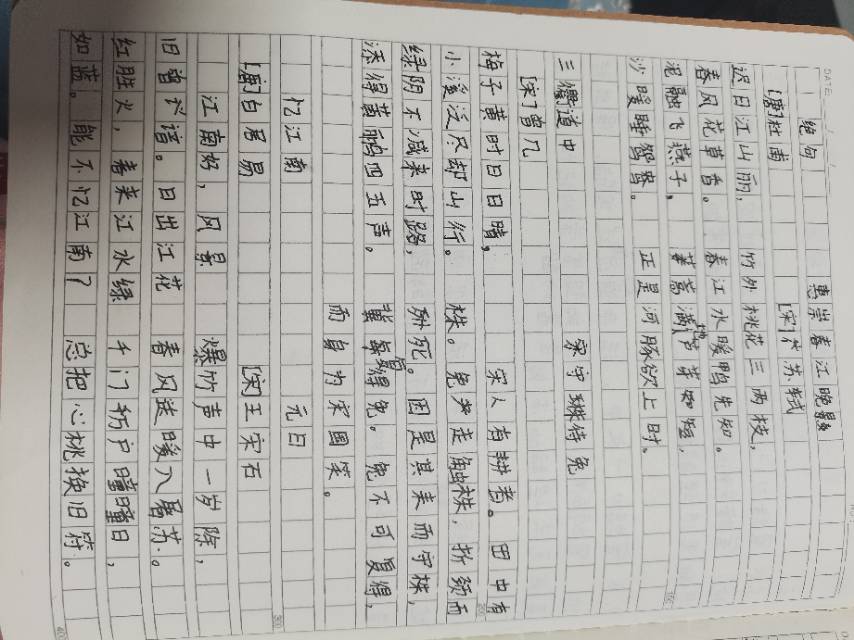 绝句
[唐]杜甫
迟日江山丽,
春风花草香。
泥融飞燕子,
沙暖睡鸳鸯。
惠崇春江晚景
[宋]苏轼
竹外桃花三两枝,
春江水暖鸭先知。
蒌蒿满地芦芽短,
正是河豚欲上时。
三衢道中
[宋]曾几
梅子黄时日日晴,
小溪泛尽却山行。
绿阴不减来时路,
添得黄鹂四五声。
守株待兔
宋人有耕者。田中有
株。兔走触株,折颈而
死。因是其耒而守株,
冀复得兔。兔不可复得,
而身为宋国笑。
忆江南
[唐]白居易
江南好,风景
旧曾谙。日出江花
红胜火,春来江水绿
如蓝。能不忆江南?
元日
[宋]王宋石
爆竹声中一岁除,
春风送暖入屠苏。
千门万户瞳瞳日,
总把心桃换旧符。